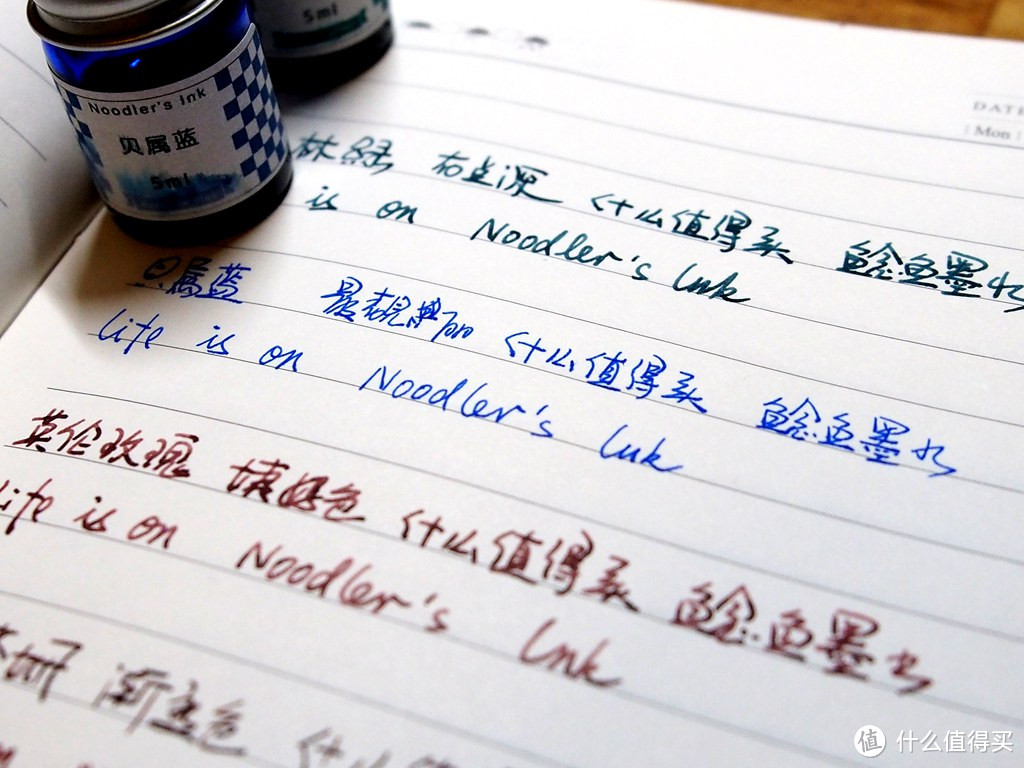 5ml
Noodler's Ink
贝属蓝
5ml
DATE
Mon
林绿 有点深 什么值得买 鲶鱼墨水
is on Noodler's Ink
贝属蓝 什么值得买 鲶鱼墨水
life is on Noodler's Ink
英伦玫瑰 填好色 什么值得买 鲶鱼墨水
life is on Noodler's Ink
渐变色 什么值
值 什么值得买